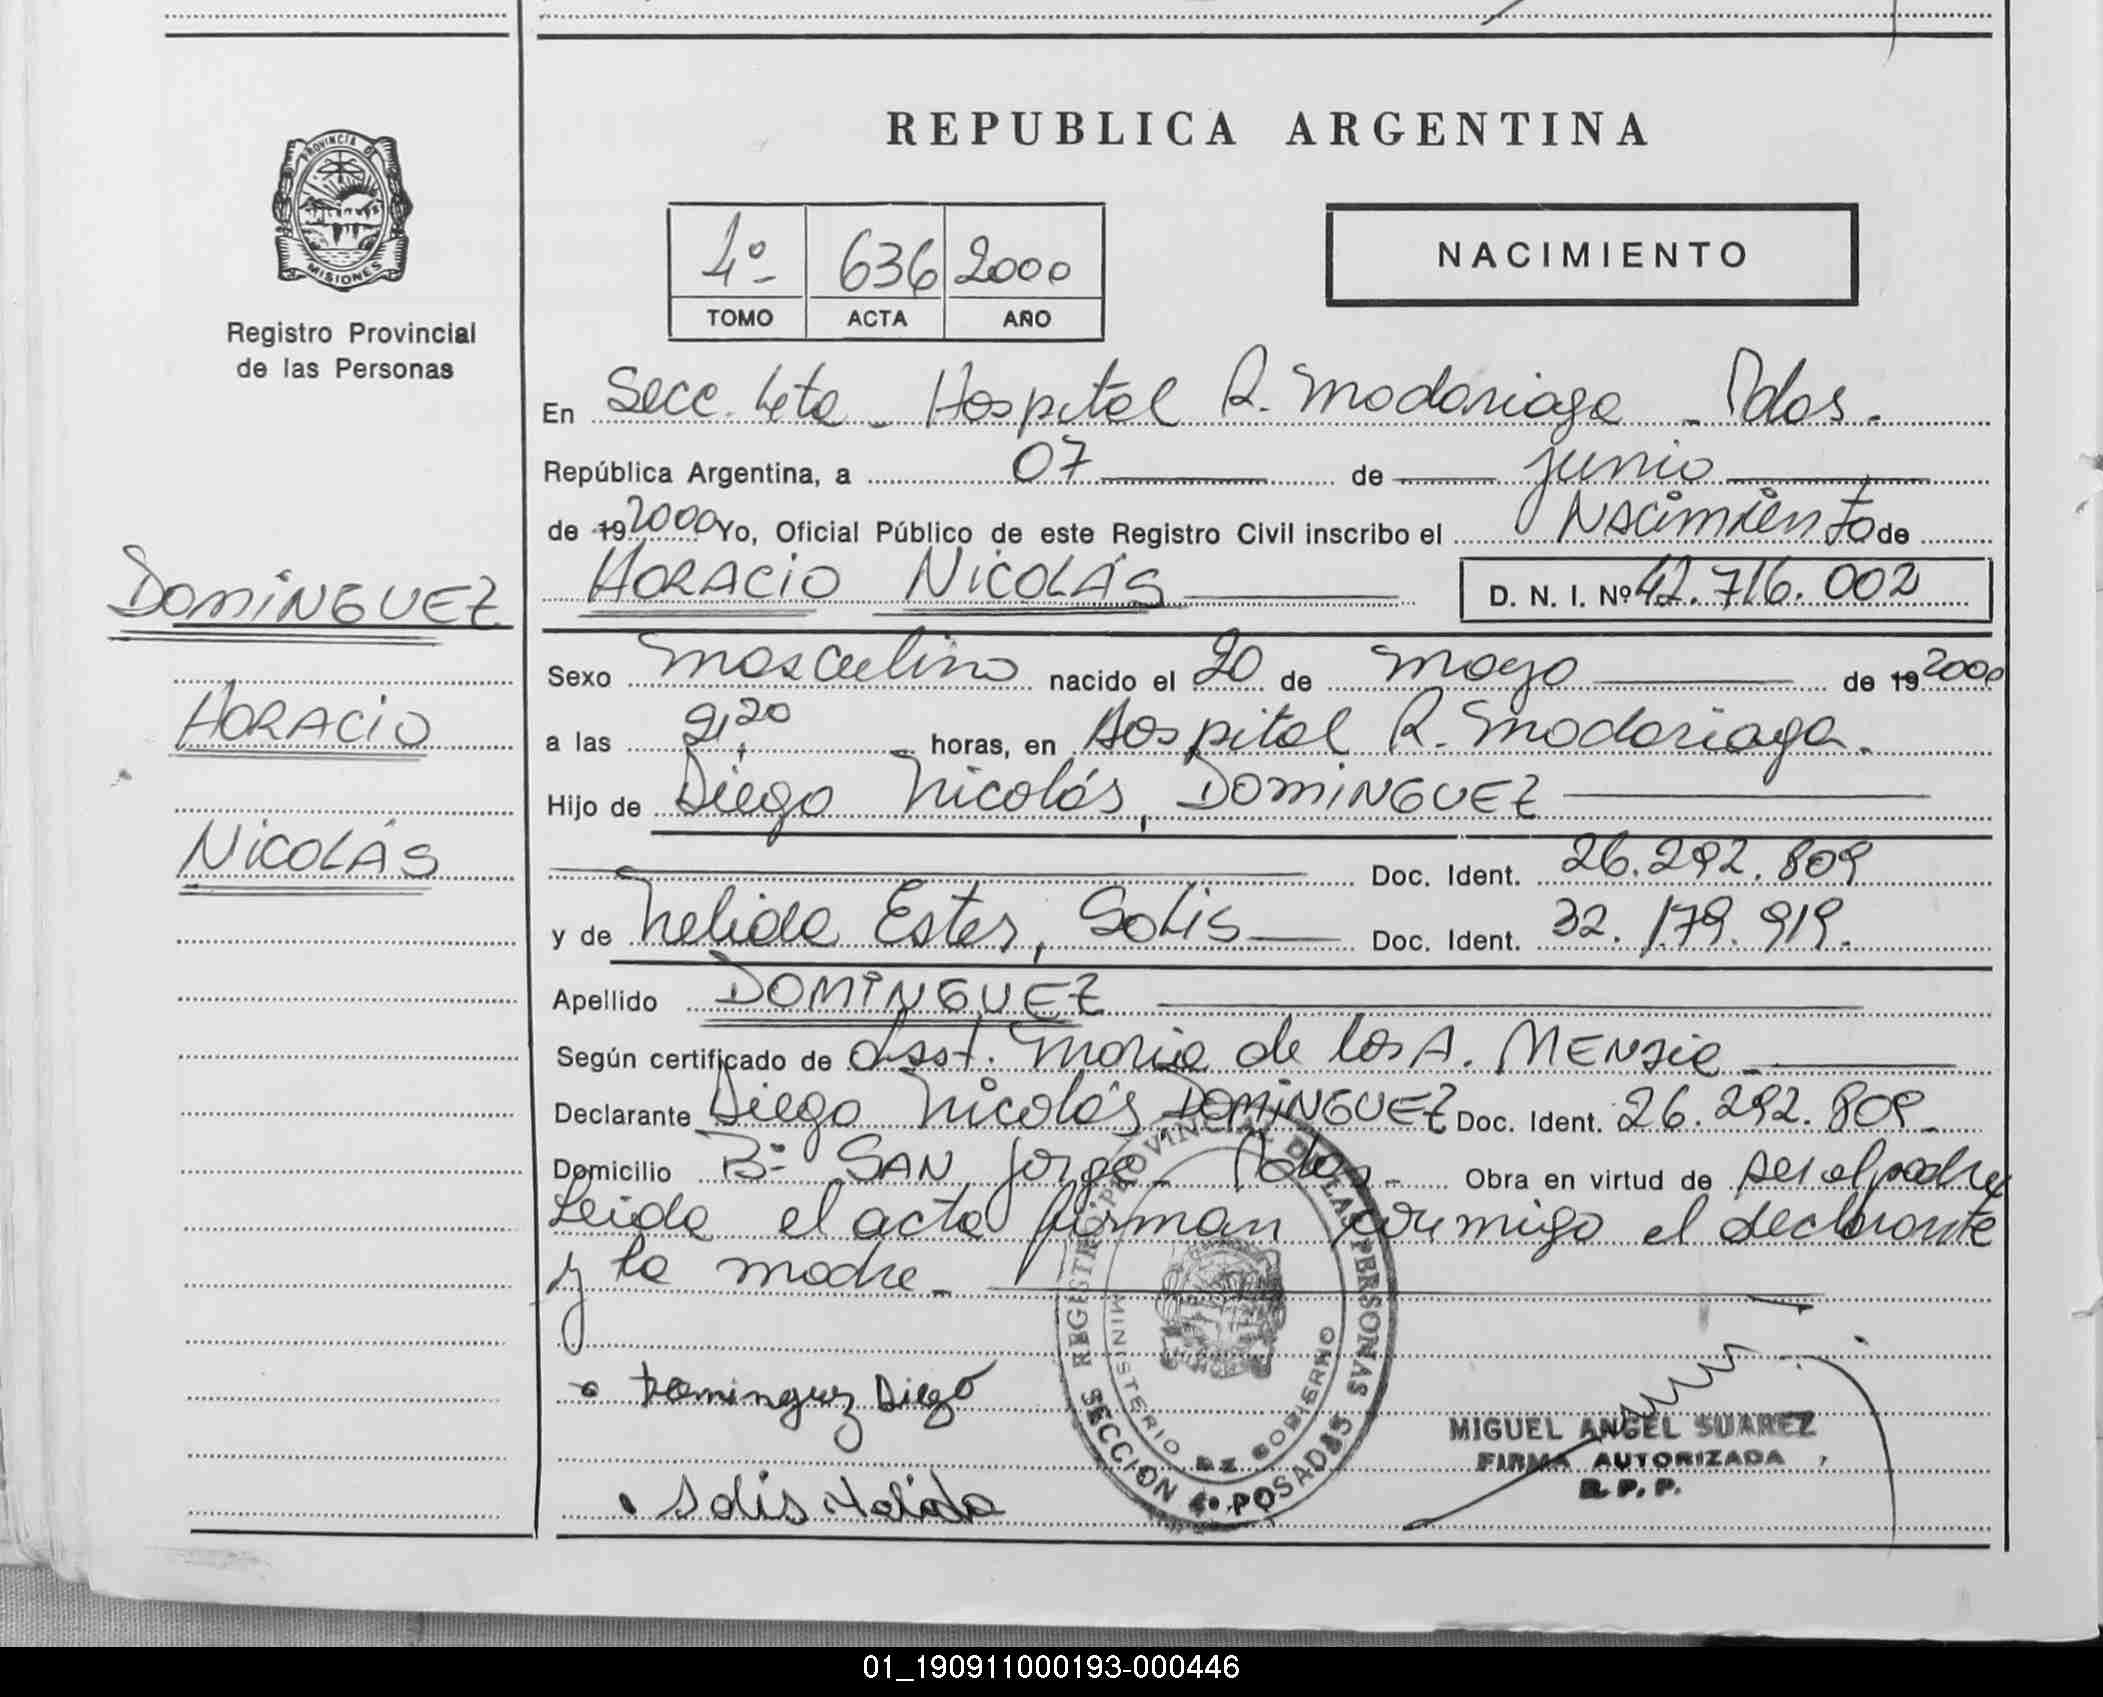 REPUBLICA ARGENTINA
PROVINCIA DE
MISIONES
Registro Provincial
de las Personas
4º- 636 2000
TOMO ACTA AÑO
NACIMIENTO
En Secc. 4ta - Hospital R. Madariaga - Pdas.
República Argentina, a 07 de junio
de 19 2000 Yo, Oficial Público de este Registro Civil inscribo el Nacimiento de
HORACIO NICOLÁS D. N. I. Nº 42.716.002
DOMINGUEZ
HORACIO
NICOLÁS
Sexo masculino nacido el 20 de mayo de 19 2000
a las 9,20 horas, en Hospital R. Madariaga.
Hijo de Diego Nicolás, DOMINGUEZ
Doc. Ident. 26.292.809
y de Nelida Ester, SOLIS Doc. Ident. 32.179.919.
Apellido DOMINGUEZ
Según certificado de Obst. Maria de los A. MENZIE -
Declarante Diego Nicolás, DOMINGUEZ Doc. Ident. 26.292.809-
Domicilio Bº SAN Jorge - Pdas - Obra en virtud de ser el padre
Leida el acta firman conmigo el declarante
y la madre -
Dominguez Diego
Solis Nelida
REGISTRO PROVINCIAL DE LAS PERSONAS
MINISTERIO DE GOBIERNO
SECCION 4º POSADAS
MIGUEL ANGEL SUAREZ
FIRMA AUTORIZADA
R. P. P.
01_190911000193-000446